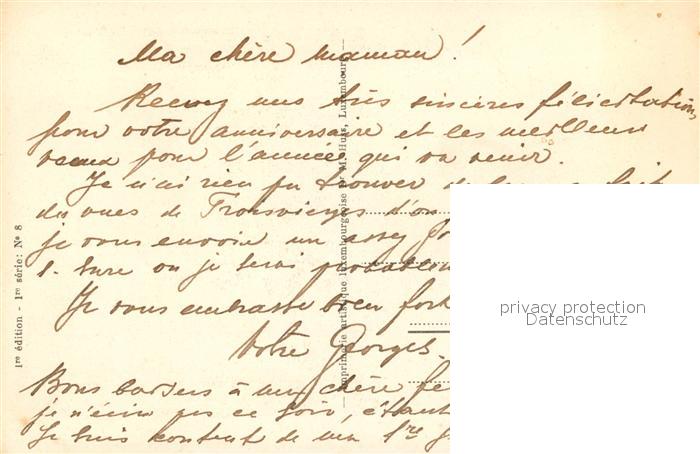 Ma chère maman!
Recevez mes très sincères félicitations
pour votre anniversaire et les meilleurs
vœux pour l'année qui va venir.
Je n'ai rien pu trouver de
des vues de Troisvierges d'où
je vous envoie un assez
s. Sure où je serai
Je vous embrasse bien fort
Votre Georges.
Bons baisers à ma chère
je n'écris pas ce soir, étant
Je suis content de ma 1re
1re édition - 1re série: No 8
Imprimerie artistique luxembourgeoise M. Huss, Luxembourg
privacy protection
Datenschutz